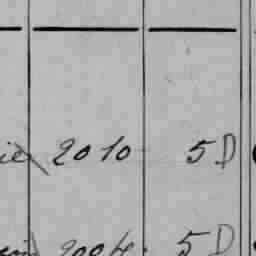 2010 5 D
2004. 5 D